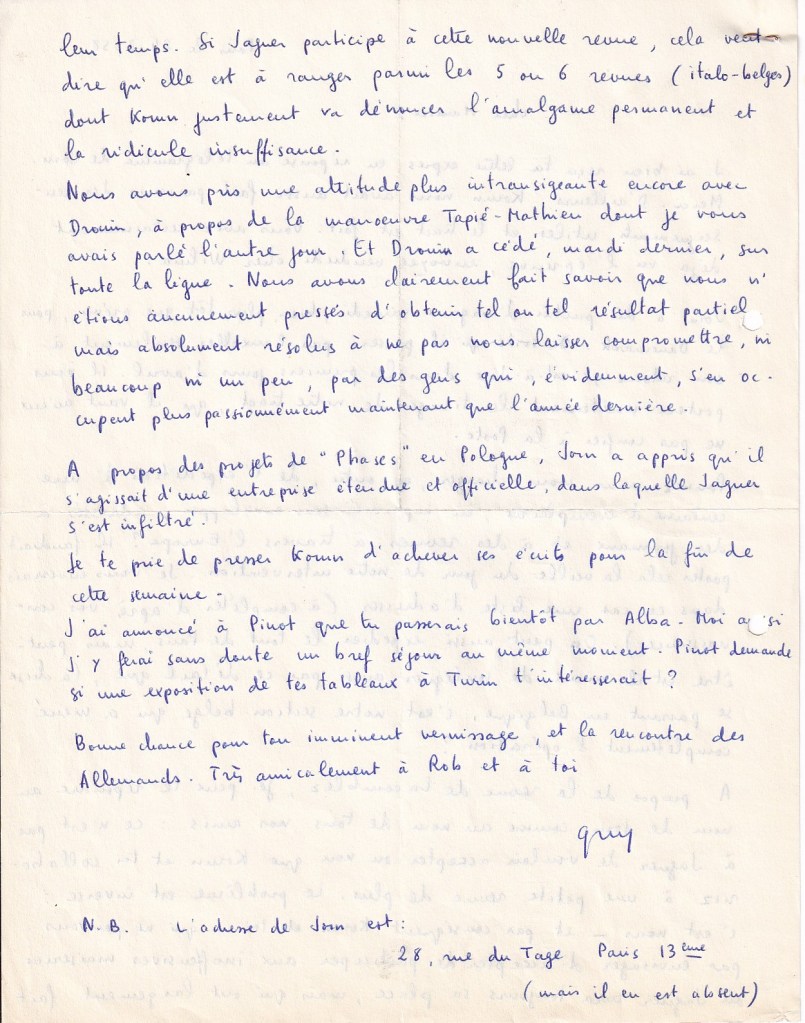 leur temps. Si Jaguer participe à cette nouvelle revue, cela veut
dire qu'elle est à ranger parmi les 5 ou 6 revues (italo-belges)
dont Korun justement va dénoncer l'amalgame permanent et
la ridicule insuffisance.
Nous avons pris une attitude plus intransigeante encore avec
Drouin, à propos de la manoeuvre Tapié-Mathieu dont je vous
avais parlé l'autre jour. Et Drouin a cédé, mardi dernier, sur
toute la ligne. Nous avons clairement fait savoir que nous n'
étions aucunement pressés d'obtenir tel ou tel résultat partiel
mais absolument résolus à ne pas nous laisser compromettre, ni
beaucoup ni un peu, par des gens qui, évidemment, s'en oc-
cupent plus passionnément maintenant que l'année dernière.
A propos des projets de "Phases" en Pologne, Jorn a appris qu'il
s'agissait d'une entreprise étendue et officielle, dans laquelle Jaguer
s'est infiltré.
Je te prie de presser Korun d'achever ses écrits pour la fin de
cette semaine.
J'ai annoncé à Pinot que tu passerais bientôt par Alba. Moi aussi
j'y ferai sans doute un bref séjour au même moment. Pinot demande
si une exposition de tes tableaux à Turin t'intéresserait ?
Bonne chance pour ton imminent vernissage, et la rencontre des
Allemands. Très amicalement à Rob et à toi
Guy
N.B. L'adresse de Jorn est :
28, rue du Tage Paris 13ème
(mais il en est absent)